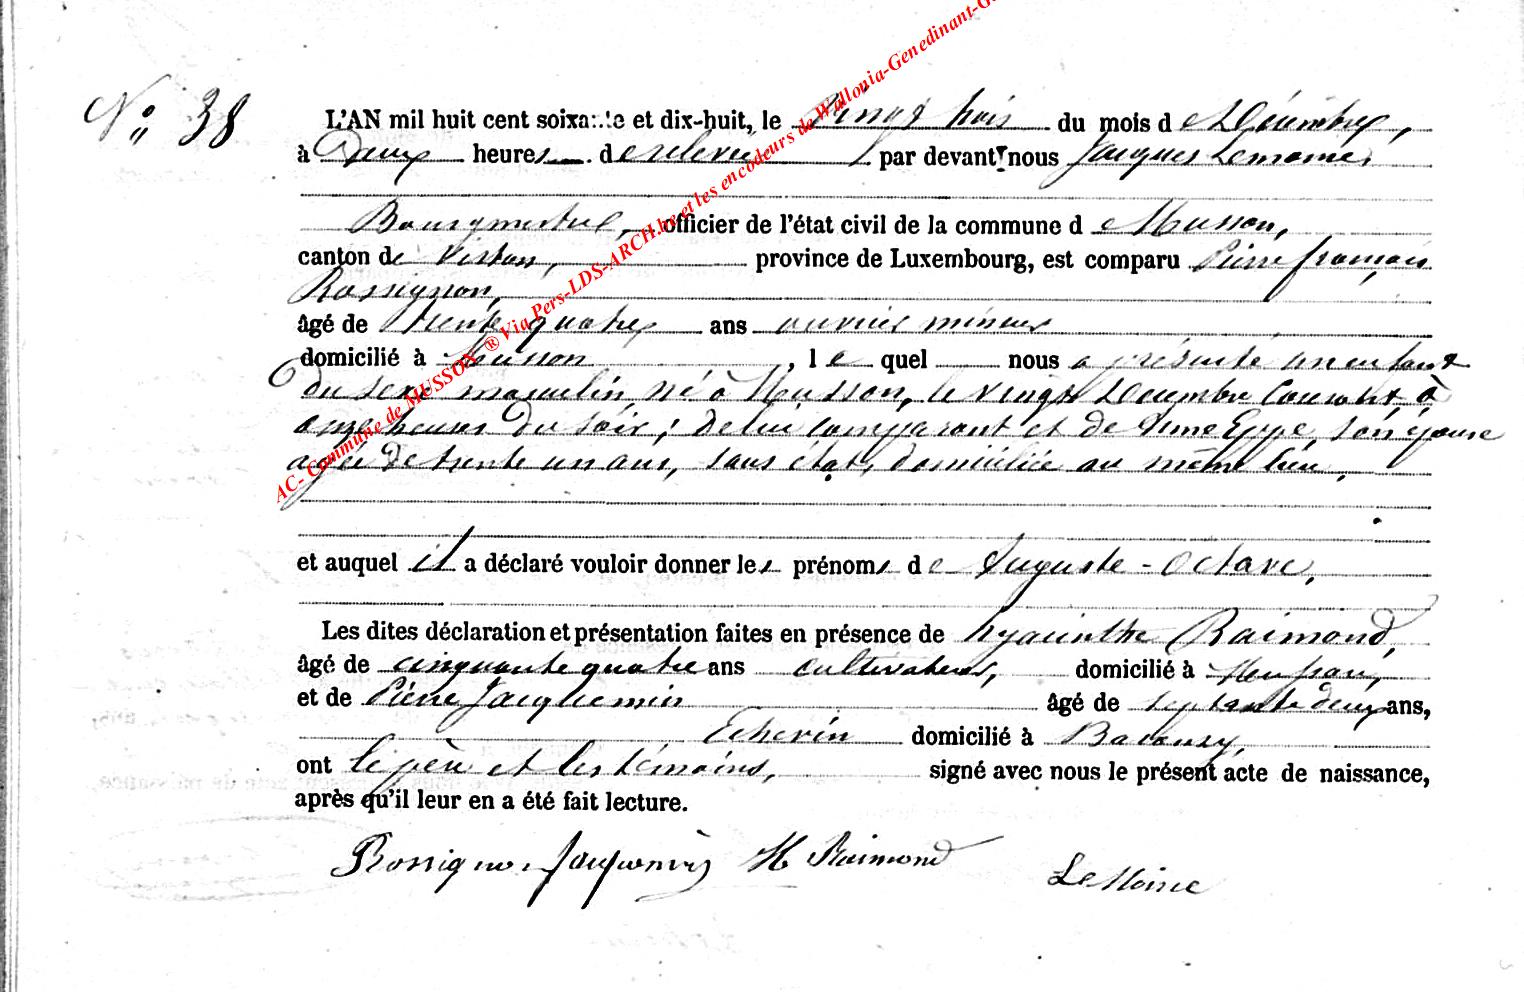 N° 38
L'AN mil huit cent soixante et dix-huit, le Vingt trois du mois de Décembre,
à Deux heures de relevée par devant nous Jacques Lemoine,
Bourgmestre, officier de l'état civil de la commune de Musson,
canton de Virton, province de Luxembourg, est comparu Pierre françois
Rossignon,
âgé de trente quatre ans ouvrier mineur
domicilié à Musson, le quel nous a présenté un enfant
du sexe masculin, né à Musson, le vingt Décembre Courant à
onze heures du soir; de lui comparant et de son épouse
agée de trente un ans, sans état, domiciliée au même lieu,
et auquel il a déclaré vouloir donner les prénoms de Auguste-Octave,
Les dites déclaration et présentation faites en présence de hyacinthe Raimond,
âgé de cinquante quatre ans cultivateur, domicilié à Musson,
et de Pierre Jacquemin âgé de septante deux ans,
Echevin domicilié à Baranzy,
ont le père et les témoins, signé avec nous le présent acte de naissance,
après qu'il leur en a été fait lecture.
Rossignon Jacquemin H Raimond LeMoine
AC- Commune de MUSSON ® Via Pers-LDS-ARCH.be et les encodeurs de Wallonia-Genedinant-G